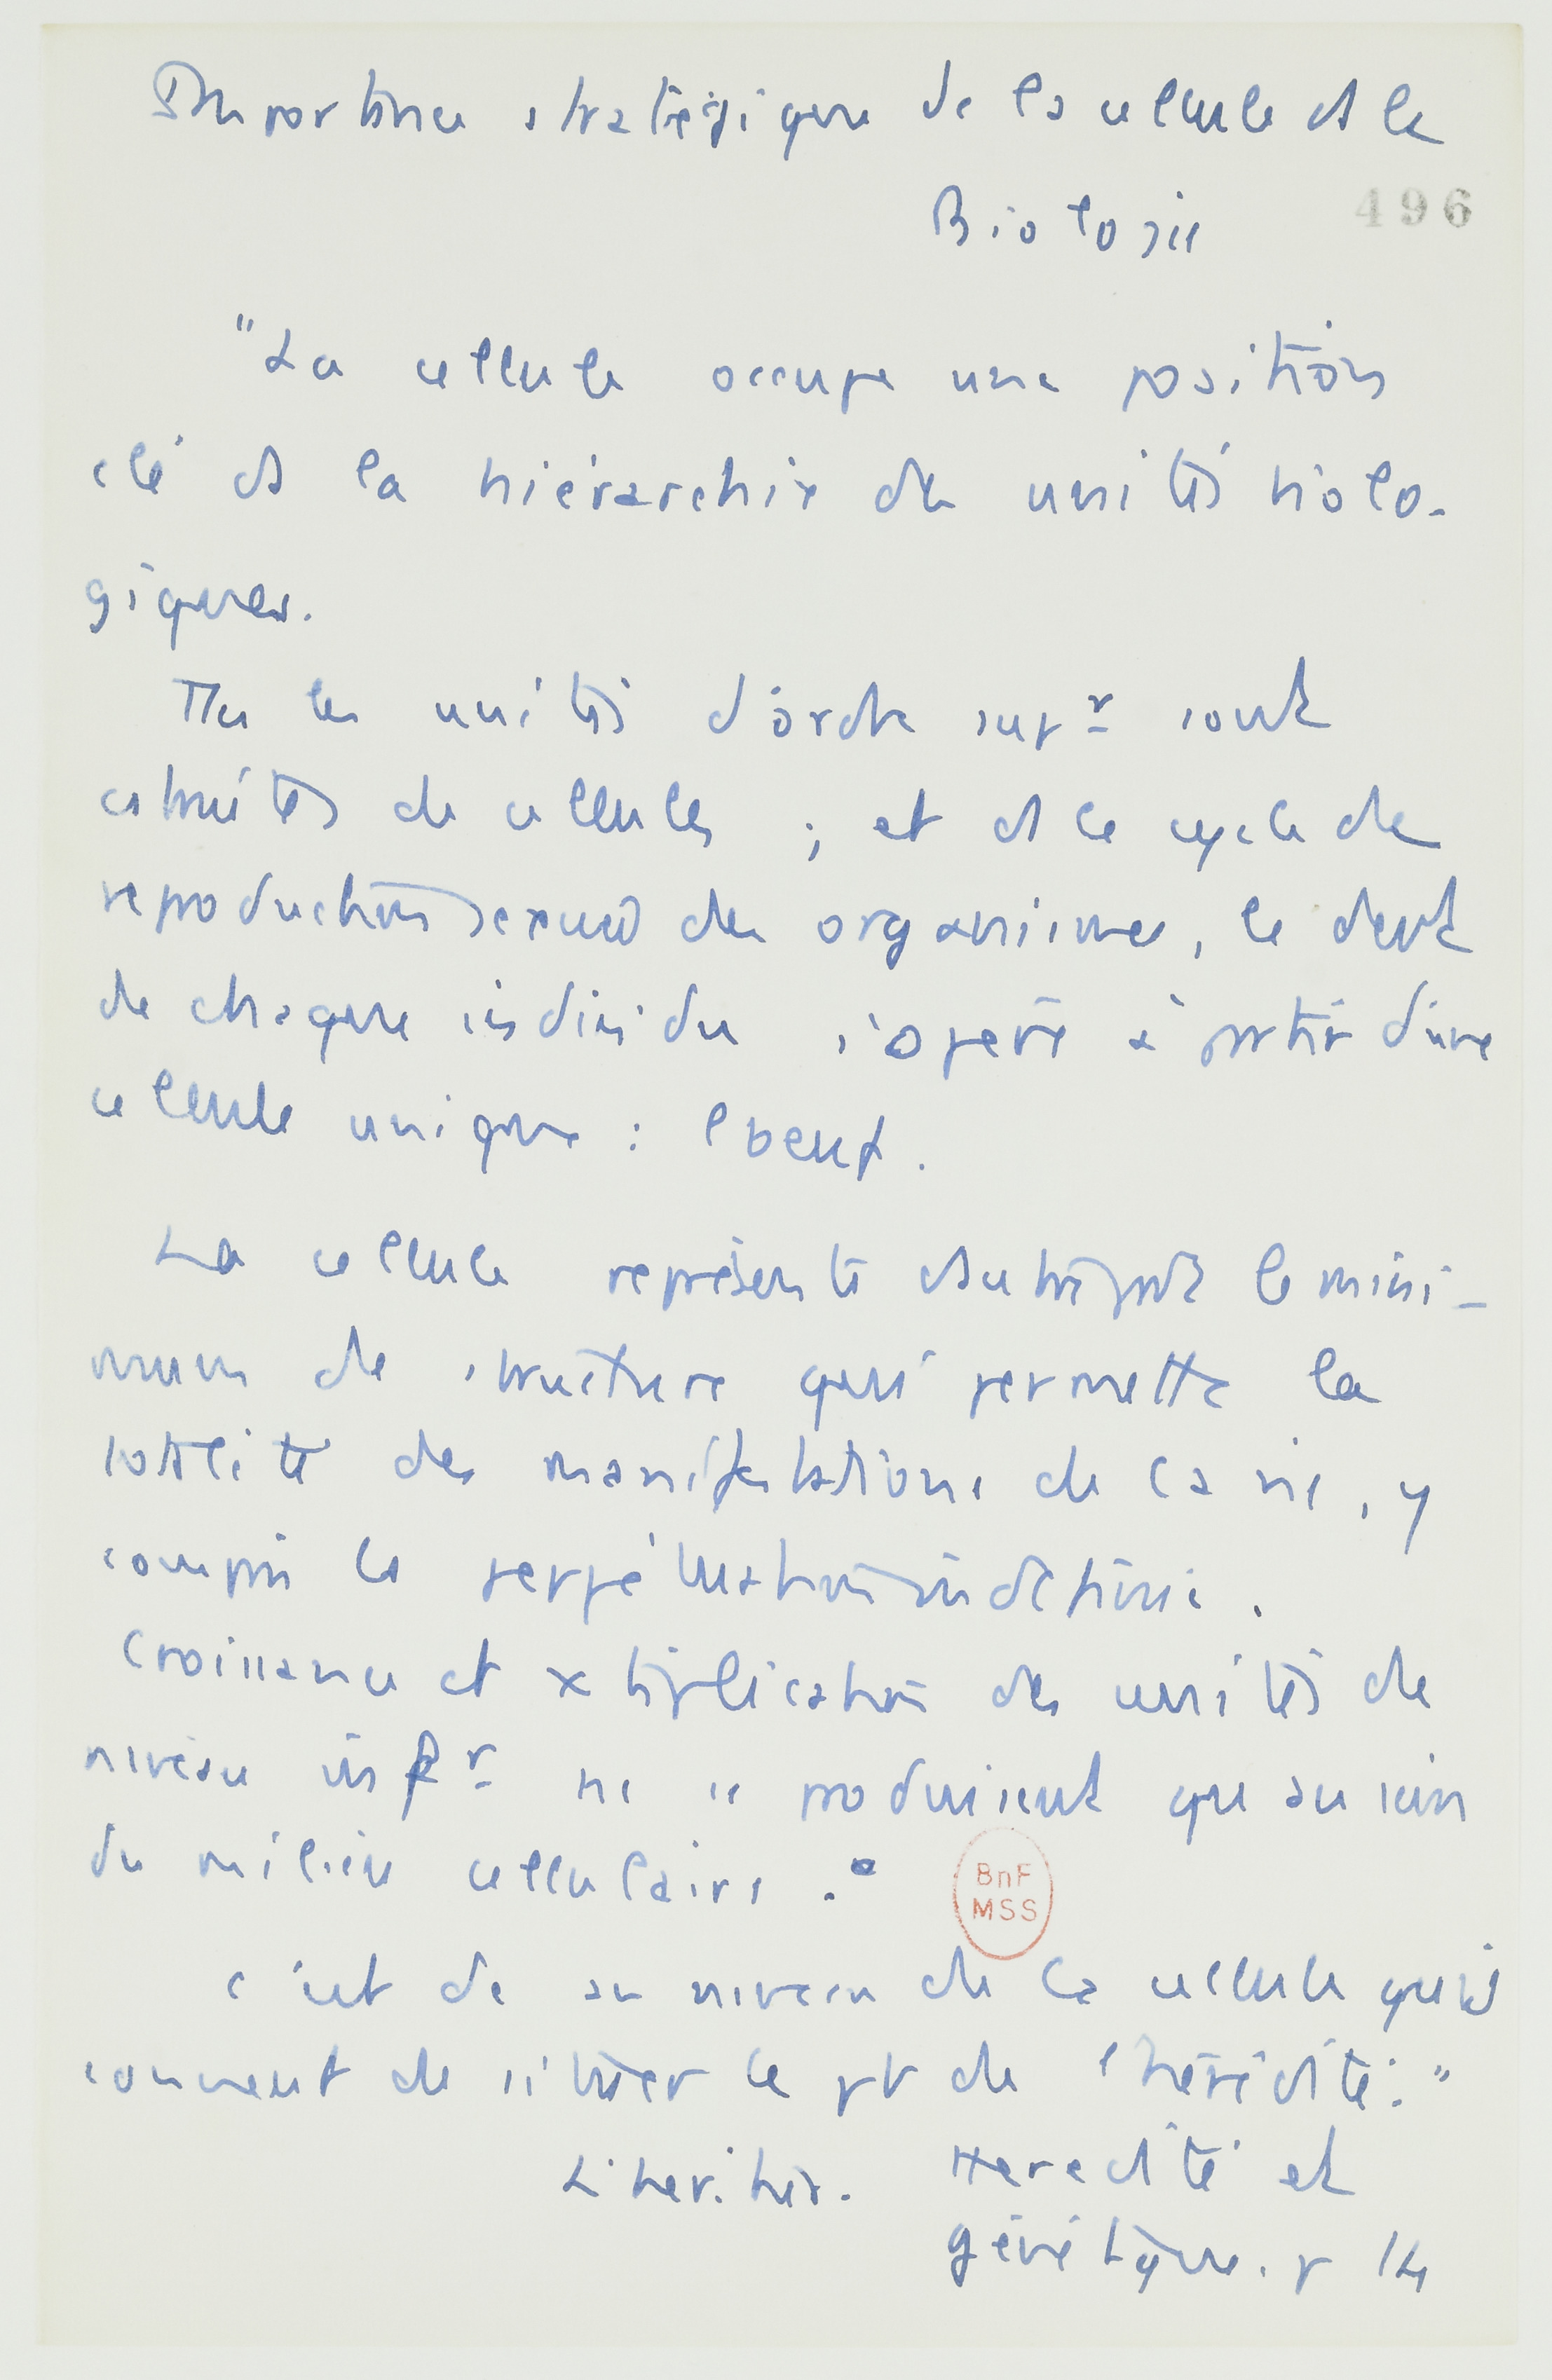 Importance stratégique de la cellule ds la
Biologie
496
"La cellule occupe une position
clé ds la hiérarchie des unités biolo-
giques.
Ttes les unités d'ordre supr sont
constituées de cellules ; et ds le cycle de
reproduction sexuée des organismes, le devt
de chaque individu s'opère à partir d'une
cellule unique : l'oeuf.
La cellule représente de la mini-
mum de structure qui permette la
totalité des manifestations de la vie, y
compris la perpétuation indéfinie.
Croissance et x tiplication des unités de
niveau infr ne se produisent qu'au sein
du milieu cellulaire."
C'est dc au niveau de la cellule qu'il
convient de situer le pb de l'hérédité."
L'Heritier. Heredité et
génétique. p 14
BnF
MSS